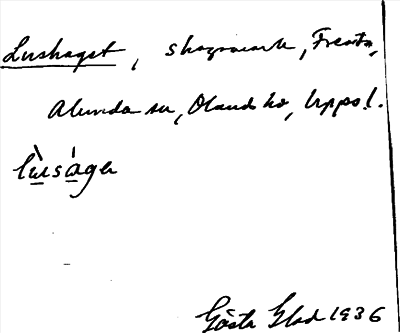 Lushaget, skogsmark, Fresta,
Alunda sn, Olands hd, Uppl.
lùsága
Gösta Glad 1936